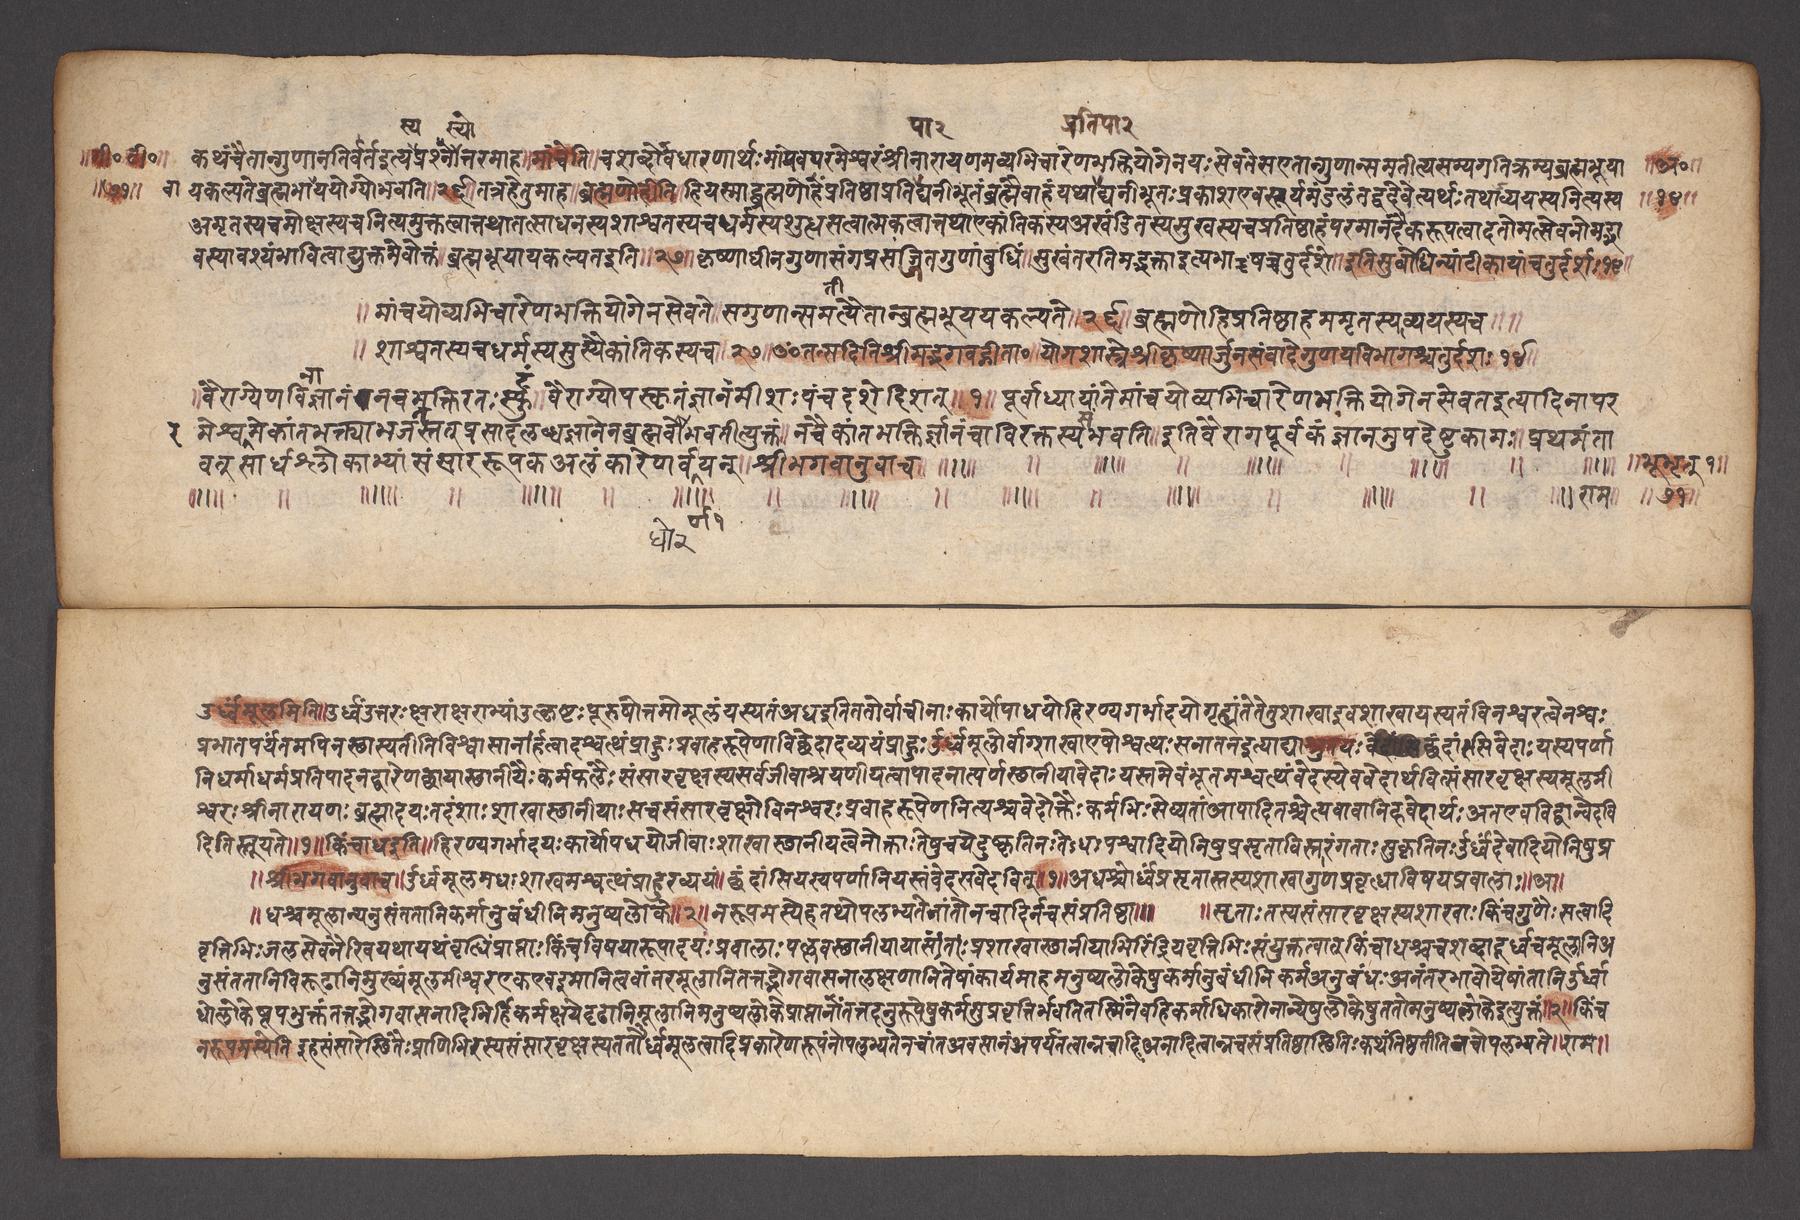 स्य स्यो पा२ प्रतिपा२
कथंचैतान्गुणानतिवर्ततइत्यप्रश्नोत्तरमाह॥मांचेति॥चशब्दोवधारणार्थः मांपवपरमेश्वरंश्रीनारायणमव्यभिचारेणभक्तियोगेनयः सेवतेसएतान्गुणान्समतीत्यसम्यगतिक्रम्यब्रह्मभूया ॥अ०॥
यकल्पतेब्रह्मभावाययोग्योभवति॥२६॥तत्रहेतुमाह॥ब्रह्मणोहीति॥हियस्माद्ब्रह्मणोहंप्रतिष्ठाप्रतिघनीभूतंब्रह्मैवाहंयथाघनीभूतः प्रकाशएवसूर्यमंडलंतद्वदेवेत्यर्थः तथाव्ययस्यनित्यस्य ॥१४॥
अमृतस्यचमोक्षस्यचनित्यमुक्तत्वात्तथातत्साधनस्यशाश्वतस्यचधर्मस्यशुद्धसत्वात्मकत्वात्तथाएकांतिकस्यअखंडितस्यसुखस्यचप्रतिष्ठाहंपरमानंदैकरूपत्वादतोमत्सेवनोमद्भा
वस्यावश्यंभावित्वाद्युक्तमेवोक्तं॥ब्रह्मभूयायकल्पतइति॥२७॥कृष्णाधीनगुणासंगप्रसंजितगुणांबुधिं॥सुखंतरतिमद्भक्तइत्यभाषचतुर्दशे॥इतिसुबोधिन्यांटीकायांचतुर्दशः१४॥
ती
॥मांचयोव्यभिचारेणभक्तियोगेनसेवते॥सगुणान्समत्यैतान्ब्रह्मभूययकल्पते॥२६॥ब्रह्मणोहिप्रतिष्ठाहममृतस्यव्ययस्यच॥॥
॥शाश्वतस्यचधर्मस्यसुस्यैकांतिकस्यच॥२७॥ॐतत्सदितिश्रीमद्भगवद्गीता०योगशास्त्रेश्रीकृष्णार्जुनसंवादेगुणयविभागश्चतुर्दशः१४॥
॥वैराग्येणविज्ञानंनचभक्तिरतः स्फुटं॥वैराग्योपस्कृतंज्ञानमीशः पंचदशेदिशत्॥१॥पूर्वाध्यायांतेमांचयोव्यभिचारेणभक्तियोगेनसेवतइत्यादिनापर
मेश्वरमेकांतभक्त्याभजतस्तत्प्रसादलब्धज्ञानेनब्रह्मभावोभवतीत्युक्तं॥नचैकांतभक्तिर्ज्ञानंचाविरक्तस्यभवति॥इतिवैरागपूर्वकंज्ञानमुपदेष्टुकामः॥प्रथमंता
वत्सार्धश्लोकाभ्यांसंसाररूपकअलंकारेणवर्णयन्॥श्रीभगवानुवाच
राम ॥७१॥
घो२ र्ण१
उर्ध्वमूलमिति॥उर्ध्वंउत्तरः क्षराक्षराभ्यांउत्कृष्टः पुरुषोत्तमोमूलंयस्यतंअधइतिततोर्वाचीनाः कार्योपाधयोहिरण्यगर्भादयोगृह्यंतेतेतुशाखाइवशाखायस्यतंविनश्वरत्वेनश्वः
प्रभातपर्यंतमपिनस्थास्यतीतिविश्वासानार्हत्वादश्वत्थंप्राहुः प्रवाहरूपेणाविछेदादव्ययंप्राहुः उर्ध्वमूलोर्वाग्शाखएषोश्वत्थः सनातनइत्याद्याश्रुतयः छंदांसिवेदाः यस्यपर्णा
निधर्माधर्मप्रतिपादनद्वारेणछायास्थानीयैः कर्मफलैः संसारवृक्षस्यसर्वजीवाश्रयणीयत्वापादनात्पर्णस्थानीयावेदाः यस्तमेवंभूतमश्वत्थंवेदस्येववेदार्थवित्संसारवृक्षस्यमूलमी
श्वरः श्रीनारायणः ब्रह्मादयः तदंशाः शाखास्थानीयाः सचसंसारवृक्षोविनश्वरः प्रवाहरूपेणनित्यश्चवेदोक्तैः कर्मभिः सेव्यतांआपादितश्चेत्येवावानिहवेदार्थः अतएवविद्वान्वेदवि
दितिस्तूयते॥१॥किंचाधइति॥हिरण्यगर्भादयः कार्योपधयोजीवाः शाखास्थानीयत्वेनोक्ताः तेषुचयेदुष्कृतिनः तेऽधः पश्वादियोनिषुप्रसृताविस्तरंगताः सुकृतिनः उर्ध्वंदेवादियोनिषुप्र
॥श्रीभगवानुवाच॥उर्ध्वमूलमधः शाखमश्वत्थंप्राहुरव्ययं॥छंदांसियस्यपर्णानियस्तंवेदसवेदवित्॥१॥अधश्चोर्ध्वंप्रसृतास्तस्यशाखागुणप्रवृद्धाविषयप्रवालाः॥अ॥
॥धश्चमूलान्यनुसंततानिकर्मानुबंधीनिमनुष्यलोके॥२॥नरूपमस्येहतथोपलभ्यतेनांतोनचादिर्नचसंप्रतिष्ठा॥ ॥सृताः तस्यसंसारवृक्षस्यशाखाः किंचगुणैः सत्वादि
वृत्तिभिः जलसेचनैरिवयथायथंवृद्धिंप्राप्ताः किंचविषयारूपादयः प्रवालाः पल्लवस्थानीयायासांताः प्रशाखास्थानीयाभिरिंद्रियवृत्तिभिः संयुक्तत्वात्किंचाधश्चचशब्दादूर्ध्वंचमूलानिअ
नुसंततानिविरूढानिमुख्यंमूलमीश्वरएकएवइमानित्ववांतरमूलानितत्तद्भोगवासनालक्षणानितेषांकार्यमाहमनुष्यलोकेषुकर्मानुबंधीनिकर्मअनुबंधः अनंतरभावीयेषांतानिउर्ध्वा
धोलोकेषूपभुक्तंतत्तद्भोगवासनादिभिर्हिकर्मक्षयेदृढानिमूलानिमनुष्यलोकेप्राप्तानांतत्तदनुरूपेषुकर्मसुप्रवृत्तिर्भवतितस्मिन्नेवहिकर्माधिकारोनान्येषुलोकेषुततोमनुष्यलोकेइत्युक्तं॥२॥किंच
नरूपमस्येतिइहसंसारेस्थितैः प्राणिभिरस्यसंसारवृक्षस्यततोर्ध्वमूलत्वादिप्रकारेणरूपंनोपलभ्यतेनचांतअवसानंअपर्यंतत्वान्नचादिःअनादित्वान्नचसंप्रतिष्ठास्थितिः कथंतिष्ठतीतिनचोपलभ्यते॥राम॥